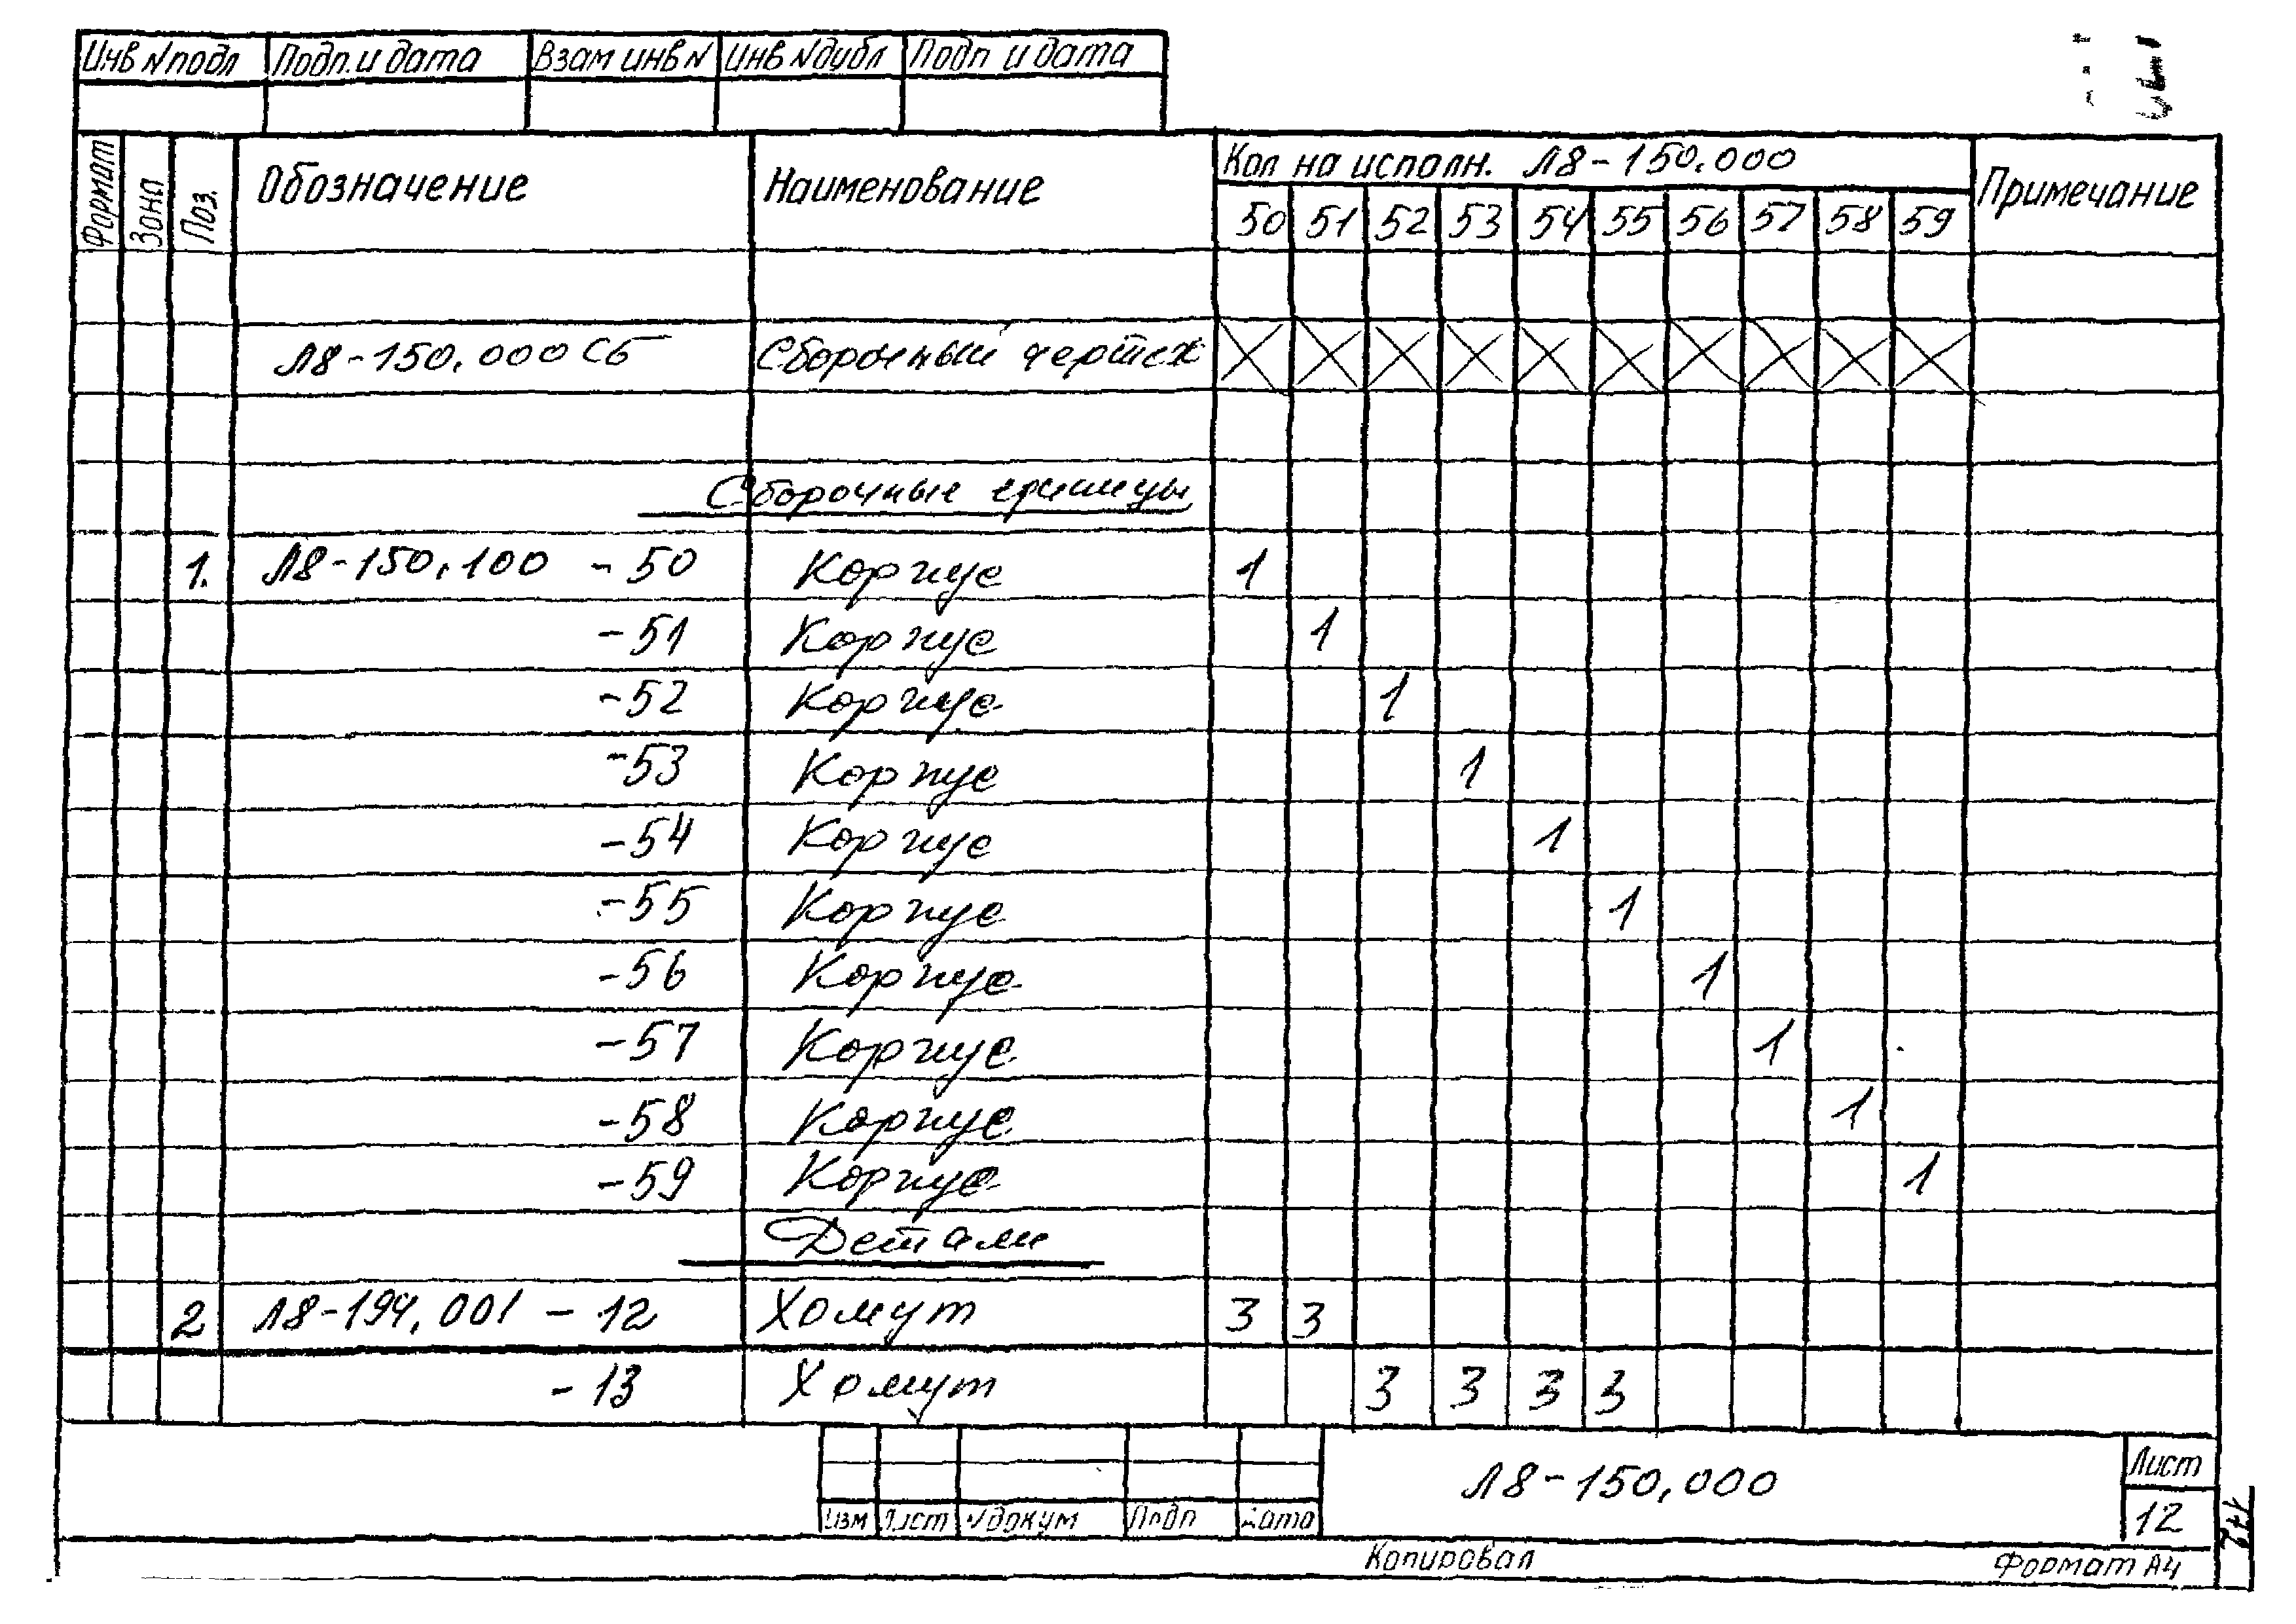 Инв № подл Подп. и дата Взам инв № Инв № дубл Подп и дата
Формат Зона Поз. Обозначение Наименование Кол на исполн. Л8-150.000 Примечание
50 51 52 53 54 55 56 57 58 59
Л8-150.000 СБ Сборочный чертеж
Сборочные единицы
1. Л8-150.100 -50 Корпус 1
-51 Корпус 1
-52 Корпус 1
-53 Корпус 1
-54 Корпус 1
-55 Корпус 1
-56 Корпус 1
-57 Корпус 1
-58 Корпус 1
-59 Корпус 1
Детали
2 Л8-194.001 - 12 Хомут 3 3
-13 Хомут 3 3 3 3
Л8-150.000 Лист
Изм Лист № докум Подп Дата 12
Копировал Формат А4